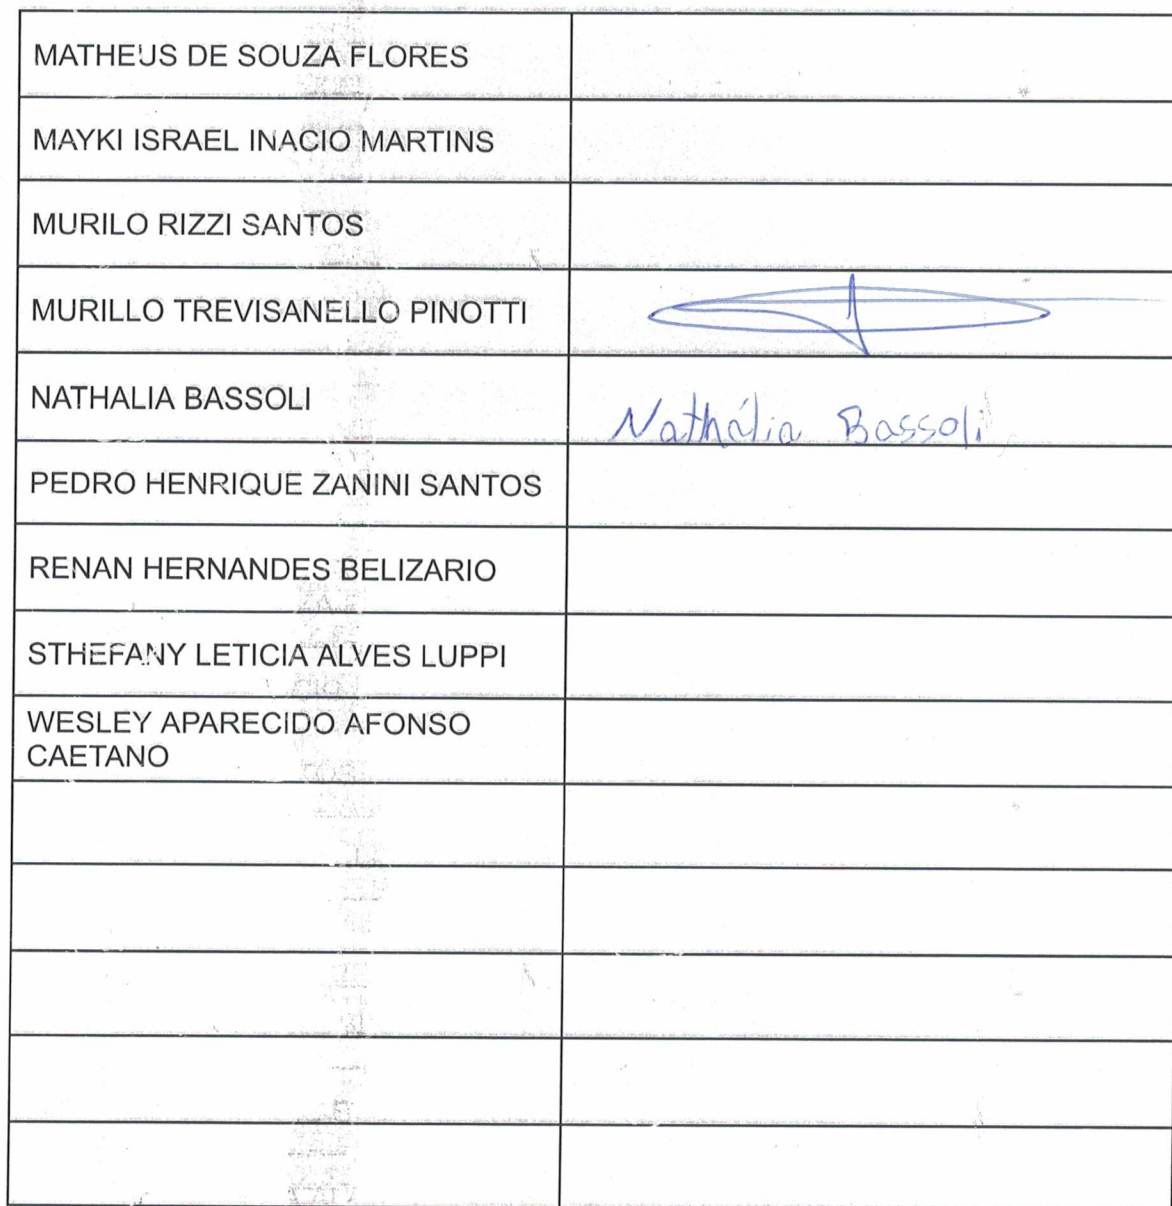 MATHEUS DE SOUZA FLORES
MAYKI ISRAEL INACIO MARTINS
MURILO RIZZI SANTOS
MURILLO TREVISANELLO PINOTTI
NATHALIA BASSOLI
Nathália Bassoli
PEDRO HENRIQUE ZANINI SANTOS
RENAN HERNANDES BELIZARIO
STHEFANY LETICIA ALVES LUPPI
WESLEY APARECIDO AFONSO
CAETANO